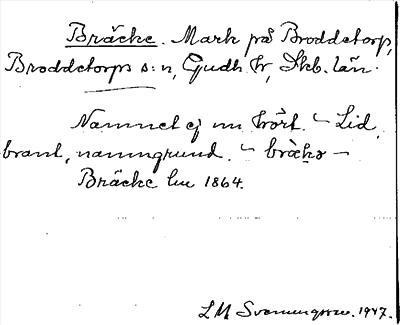 Bräcke. Mark på Broddetorp,
Broddetorps s:n, Gudh. hr, Skb. län.
Namnet ej nu hört. – Lid,
brant, namngrund. – bräkə –
Bräcke lm 1864.
LM Svenungsson. 1947.